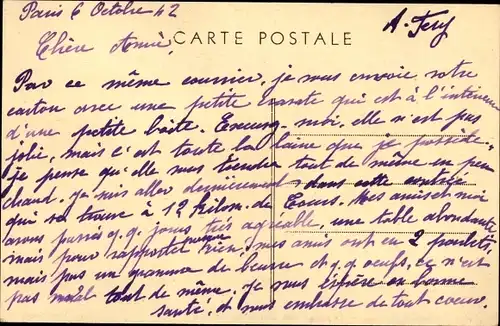 Paris 6 Octobre 42
A. Fery
Chère Amie,
CARTE POSTALE
Par ce même courrier, je vous envoie votre
carton avec une petite cravate qui est à l'intérieur
d'une petite boite. Excusez-moi, elle n'est pas
jolie, mais c'est toute la laine que je possède.
je pense qu'elle vous tiendra tout de même un peu
chaud. je suis allée dernièrement dans cette contrée
qui se trouve à 12 kilom. de Mes amis et moi
avons passés q.q. jours très agréable, une table abondante,
mais pour rapporter presque rien, mes amis ont eu 2 poulets,
mais pas un gramme de beurre et q.q. oeufs, ce n'est
pas mal tout de même. Je vous espère en bonne
santé, et vous embrasse de tout coeur.